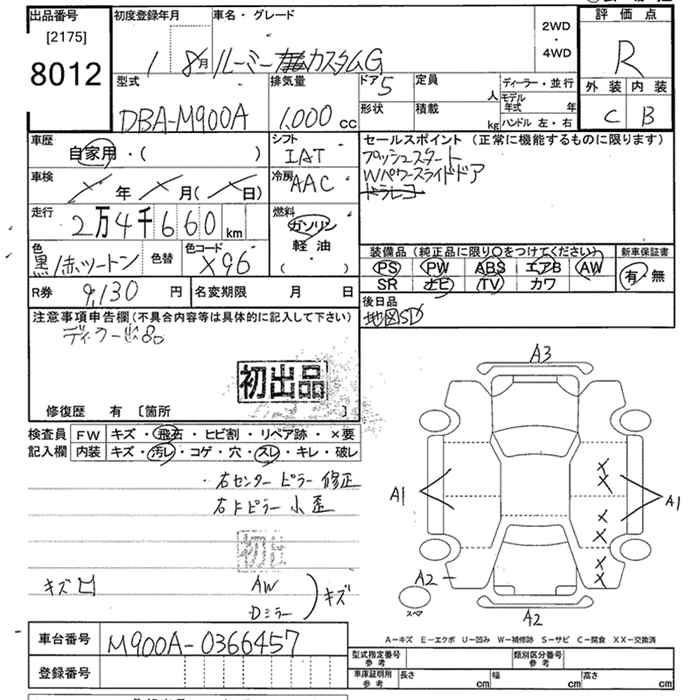 出品番号
[2175]
8012
初度登録年月
1 8月
車名・グレード
ルーミー カスタムG
2WD
・
4WD
評価点
R
外装 内装
C B
型式
DBA-M900A
排気量
1,000 cc
ドア 5
形状
定員 人
積載 kg
ディーラー・並行
モデル年式 年
ハンドル 左・右
車歴
自家用・( )
シフト
IAT
セールスポイント (正常に機能するものに限ります)
プッシュスタート
Wパワースライドドア
ドラレコ
車検
年 月( 日)
冷房
AAC
走行
2万4千660km
燃料
ガソリン
軽油
( ・ )
色
黒/赤ツートン
色替
色コード
X96
装備品 (純正品に限り○をつけてください)
PS PW ABS エアB AW
SR ナビ TV カワ
新車保証書
有・無
R券 9,130 円
名変期限 月 日
後日品
地図SD
注意事項申告欄 (不具合内容等は具体的に記入して下さい)
初出品
修復歴 有 [箇所 ]
検査員
記入欄
FW キズ・飛石・ヒビ割・リペア跡・×要
内装 キズ・汚レ・コゲ・穴・スレ・キレ・破レ
・右センターピラー 修正
右Fピラー 小歪
初出
キズ凹
AW
Dミラー
キズ
A3
A1
A1
A2
スペア
A2
A-キズ E-エクボ U-凹み W-補修跡 S-サビ C-腐食 XX-交換済
車台番号 M900A-0366457
登録番号
型式指定番号 参考
類別区分番号 参考
車庫証明用 参考
長さ cm
幅 cm
高さ cm